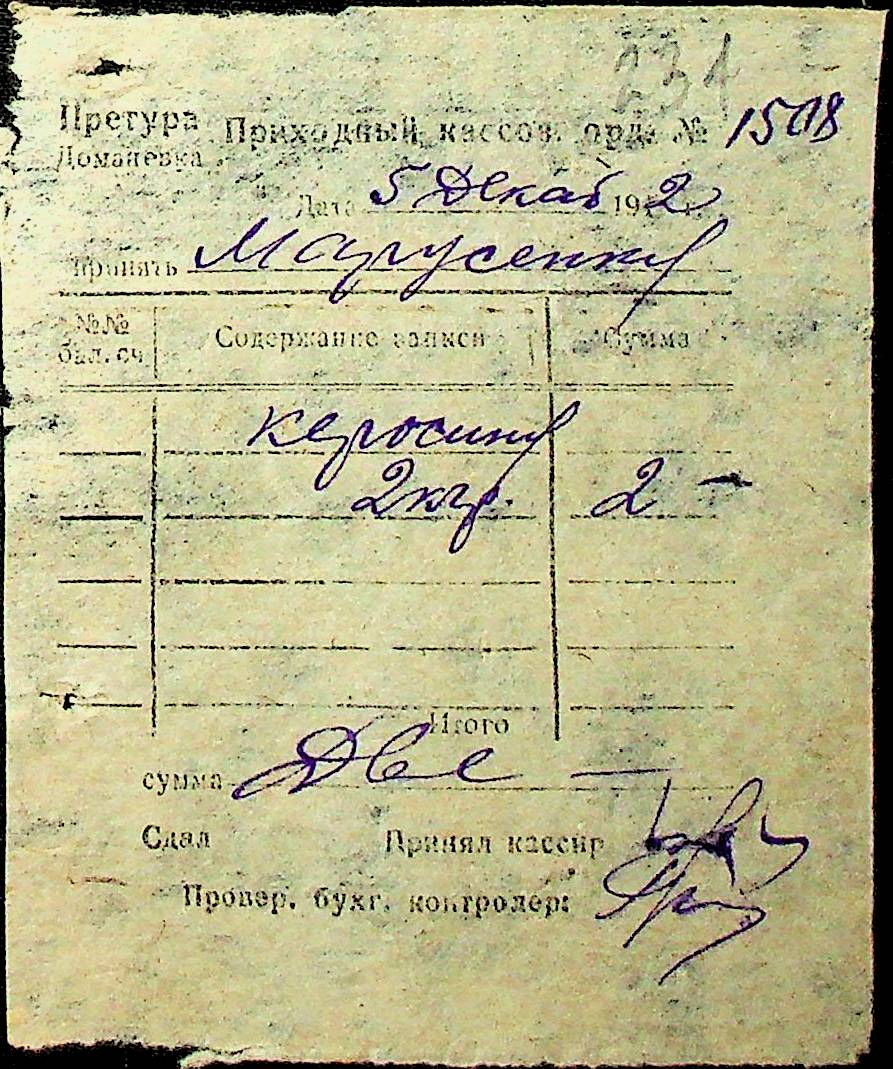 231
Претура
Доманевка
Приходный кассов. орд. № 1508
Дата 5 Декаб 1942 г.
принять Марусенку
№№
бал. сч
Содержание записи
Сумма
керосину
2 кгр. 2 —
Итого
сумма Две —
Сдал Принял кассир
Провер. бухг. контролер: